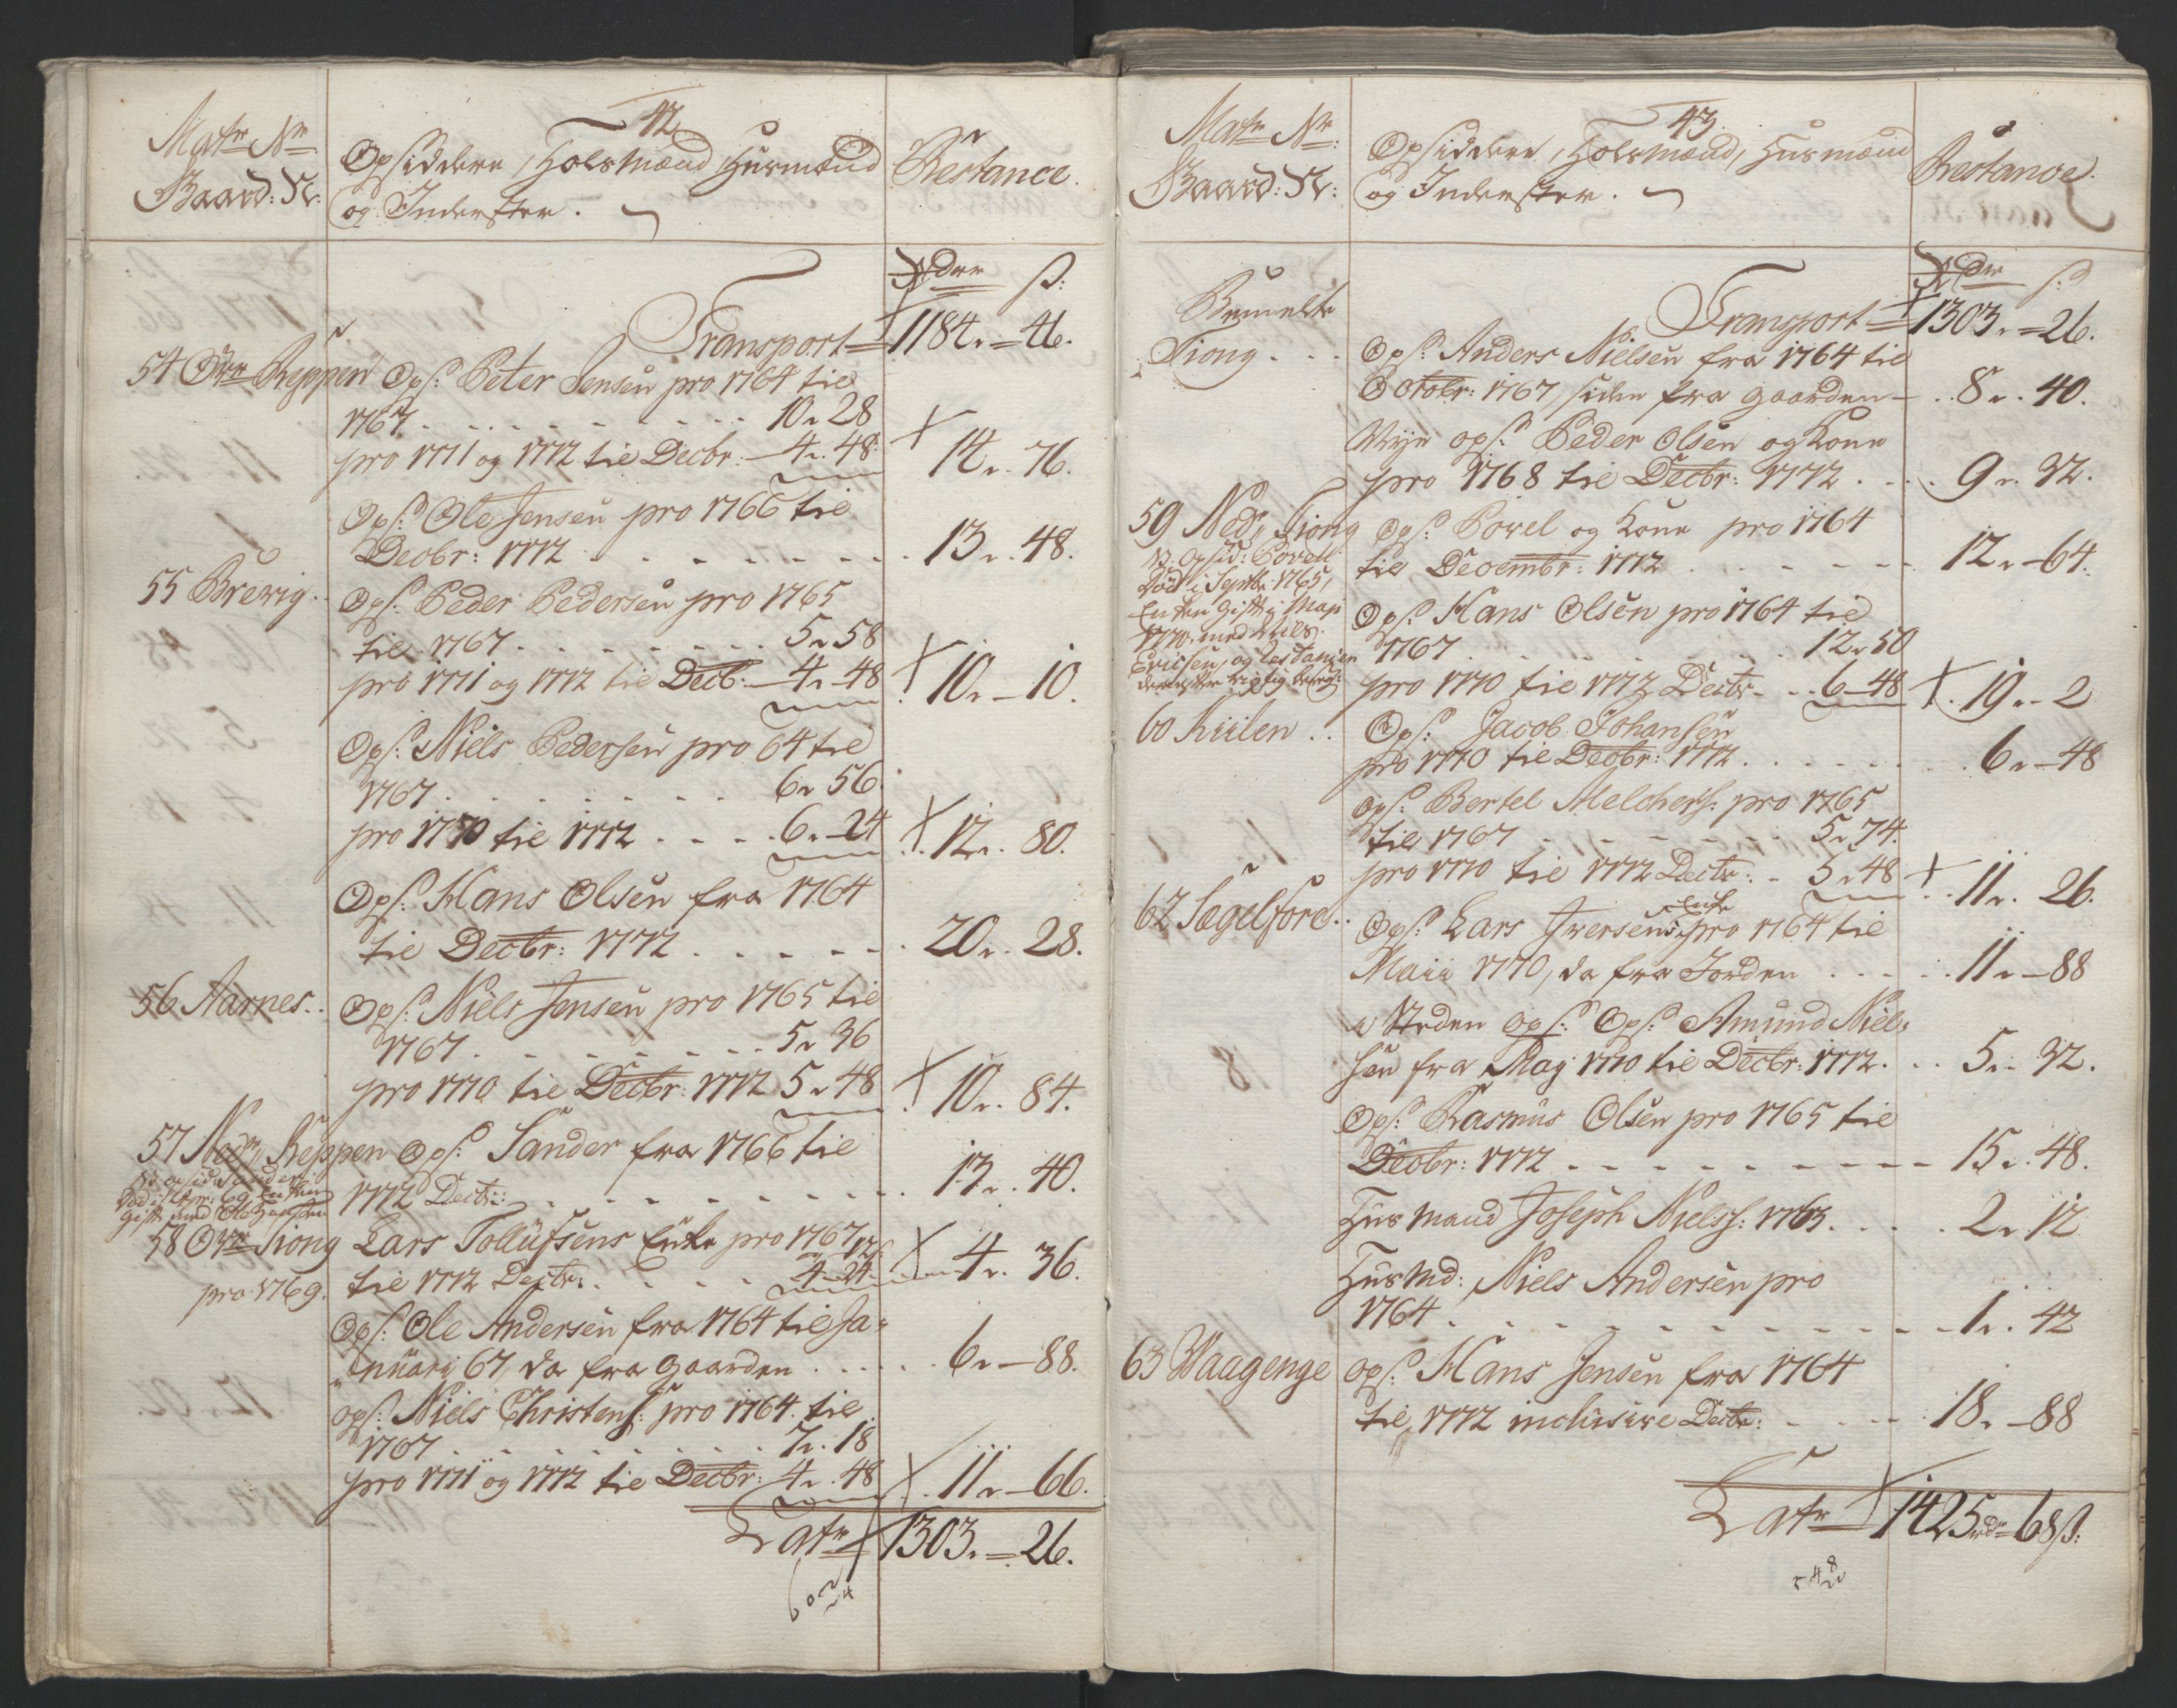 42
Matr Nr
Gaard: N:
Opsiddere, Holsmænd, Husmænd
og Inderster.
Restance.
Rdr ß:
Transport 1184 " 46.
54 Øvr Reppen Ops: Peter Jensen pro 1764 til
1767 . . . 10 " 28
pro 1771 og 1772 til Decbr: 4 " 48. 14 " 76.
Ops: Ole Jensen pro 1766 til
Decbr: 1772 . . . 13 " 48.
55 Brevig. Ops: Peder Pedersen pro 1765
til 1767 . . . 5 " 58
pro 1771 og 1772 til Decb: 4 " 48 10 " 10.
Ops: Niels Pedersen pro 64 til
1767 . . . 6 " 56.
pro 1770 til 1772 . . . 6 " 24 12 " 80.
Ops: Hans Olsen fra 1764
til Decbr: 1772 . . . 20 " 28.
56 Aarnes. Ops: Niels Jensen pro 1765 til
1767 . . . 5 " 36
pro 1770 til Decbr: 1772 5 " 48 10 " 84.
57 Nedr Reppen Ops: Sander fra 1766 til
1772 Decbr: . . . 13 " 40.
NB opsid: Sander
Død i 69 Enken
Gift med Ole Hansen
58 Øvr Tiong Lars Tollufsens Enke pro 1767 12ß
pro 1769. til 1772 Decbr: . . . 4 " 24 4 " 36.
Ops: Ole Andersen fra 1764 til Ja-
nuari 67, da fra Gaarden . . . 6 " 88.
ops: Niels Christens: pro 1764 til
1767 . . . 7 " 18
pro 1771 og 1772 til Decbr: 4 " 48 11 " 66.
Latr 1303 " 26.
43.
Matr Nr:
Gaard: N:
Opsiddere, Holsmænd, Husmænd
og Inderster.
Restance.
Rdr ß:
Transport 1303 " 26.
Bemelte
Tiong . . . Ops: Anders Nielsen fra 1764 til
Octobr: 1767, siden fra gaarden . . 8 " 40.
Nye ops: Peder Olsen og Kone
pro 1768 til Decbr: 1772 . . . 9 " 32.
59 Nedr Tiong Ops: Povel og Kone pro 1764
til Decembr: 1772 . . . 12 " 64.
NB. Opsid: Povel
Død i Septbr 1765,
Enken Gift i Maji
1770 med Niels
Ericsen, og
derefter rigtig
Ops: Hans Olsen pro 1764 til
1767 . . . 12 " 50
pro 1770 til 1772 Decbr . . 6 " 48 19 " 2
60 Kiilen . . Ops: Jacob Johansen
pro 1770 til Decbr: 1772 . . . 6 " 48
Ops: Bertel Melchers: pro 1765
til 1767 . . . 5 " 74.
pro 1770 til 1772 Decbr: . 5 " 48 11 " 26.
62 Sægelfore . . Ops: Lars Iversens Enke pro 1764 til
Maii 1770, da fra Jorden . . . 11 " 88
i Steden ops: Ops: Amund Niel-
sen fra Maj 1770 til Decbr: 1772. . . 5 " 32.
Ops: Rasmus Olsen pro 1765 til
Decbr: 1772 . . . 15 " 48.
Husmand Joseph Nielss: 1763 . . . 2 " 12
Husmd: Niels Andersen pro
1764 . . . 1 " 42
63 Waagenge Ops: Hans Jensen fra 1764
til 1772 inclusive Decbr: . . . 18 " 88
Latr 1425 rdr 68ß: